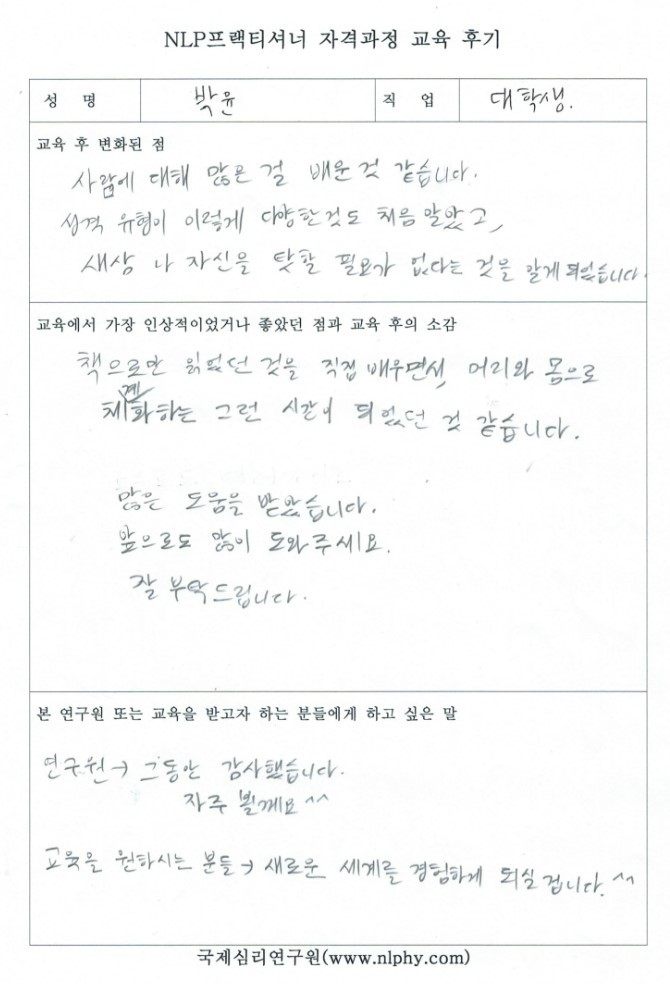 NLP프랙티셔너 자격과정 교육 후기
성 명 박윤 직 업 대학생.
교육 후 변화된 점
사람에 대해 많은 걸 배운 것 같습니다.
성격 유형이 이렇게 다양한것도 처음 알았고,
새상 나 자신을 탓할 필요가 없다는 것을 알게 되었습니다.
교육에서 가장 인상적이었거나 좋았던 점과 교육 후의 소감
책으로만 읽었던 것을 직접 배우면서, 머리와 몸으로
체화하는 그런 시간이 되었던 것 같습니다.
많은 도움을 받았습니다.
앞으로도 많이 도와주세요.
잘 부탁드립니다.
본 연구원 또는 교육을 받고자 하는 분들에게 하고 싶은 말
연구원→ 그동안 감사했습니다.
자주 뵐께요^^
교육을 원하시는 분들→ 새로운 세계를 경험하게 되실 겁니다.^^
국제심리연구원(www.nlphy.com)